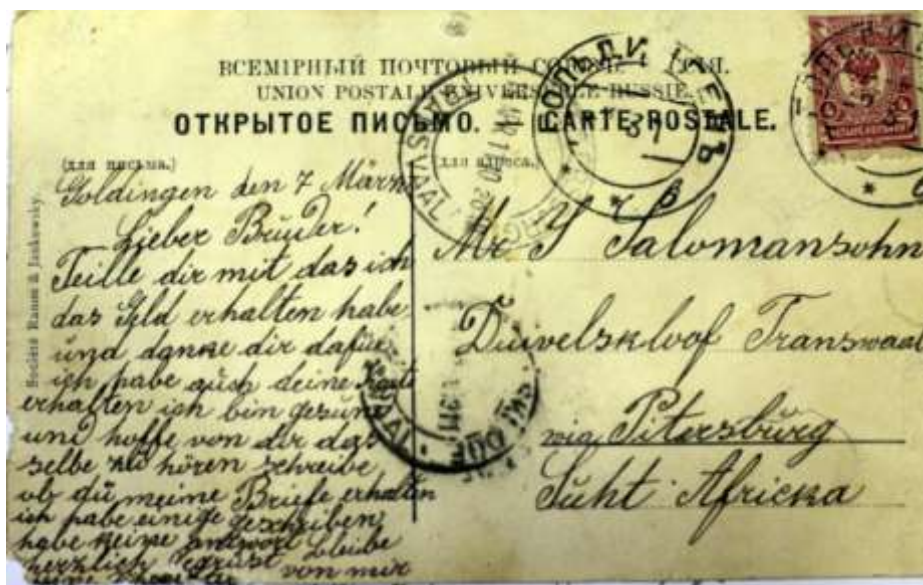 ВСЕМІРНЫЙ ПОЧТОВЫЙ
UNION POSTALE UNIVERSELLE RUSSIE.
ОТКРЫТОЕ ПИСЬМО. CARTE POSTALE.
(для письма.)
(для адреса.)
Goldingen den 7 März
Lieber Brüder!
Teille dir mit das ich
das Geld erhalten habe
und danke dir dafür
ich habe auch deine
erhalten ich bin gesund
und hoffe von dir das
selbe zu hören schreibe
ob du meine Briefe erhalten
ich habe einige geschrieben
habe keine antwort bleibe
herzlich von mir
Mr Salomansohn
Duivelskloof Transwaal
via Pitersbürg
Suht Africka